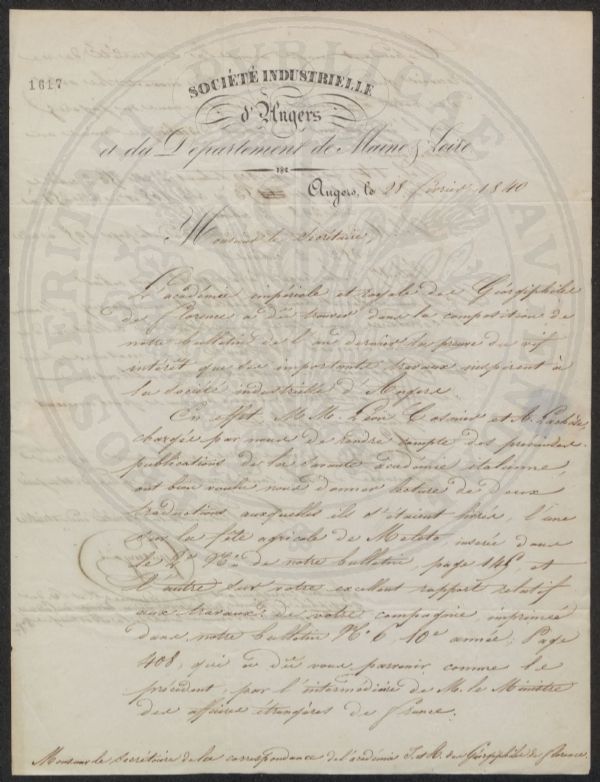 1617
SOCIÉTÉ INDUSTRIELLE
d'Angers
et du Département de Maine & Loire
Angers, le 28 février 1840
Monsieur le Secrétaire,
L'académie impériale et royale des Géorgiphiles
de Florence a dû trouver dans la composition de
notre bulletin de l'an dernier la preuve du vif
intérêt que ses importants travaux inspirent à
la Société industrielle d'Angers.
En effet M.M. Léon Cosnier et A. Lachèse
chargés par nous de rendre compte des précieuses
publications de la savante académie italienne
ont bien voulu nous donner lecture de deux
traductions auxquelles ils s'étaient livrés, l'une
sur la fête agricole de Meleto insérée dans
le 2e No. de notre bulletin, page 145, et
l'autre sur votre excellent rapport relatif
aux travaux de votre compagnie imprimée
dans notre bulletin No 6, 10e année, Page
408, qui a dû vous parvenir comme le
précédent, par l'intermédiaire de M. le Ministre
des affaires étrangères de France.
Monsieur le Secrétaire de la correspondance de l'académie I. et R. des Géorgiphiles de Florence.
PROSPERITATI PUBLICAE AUGENDAE